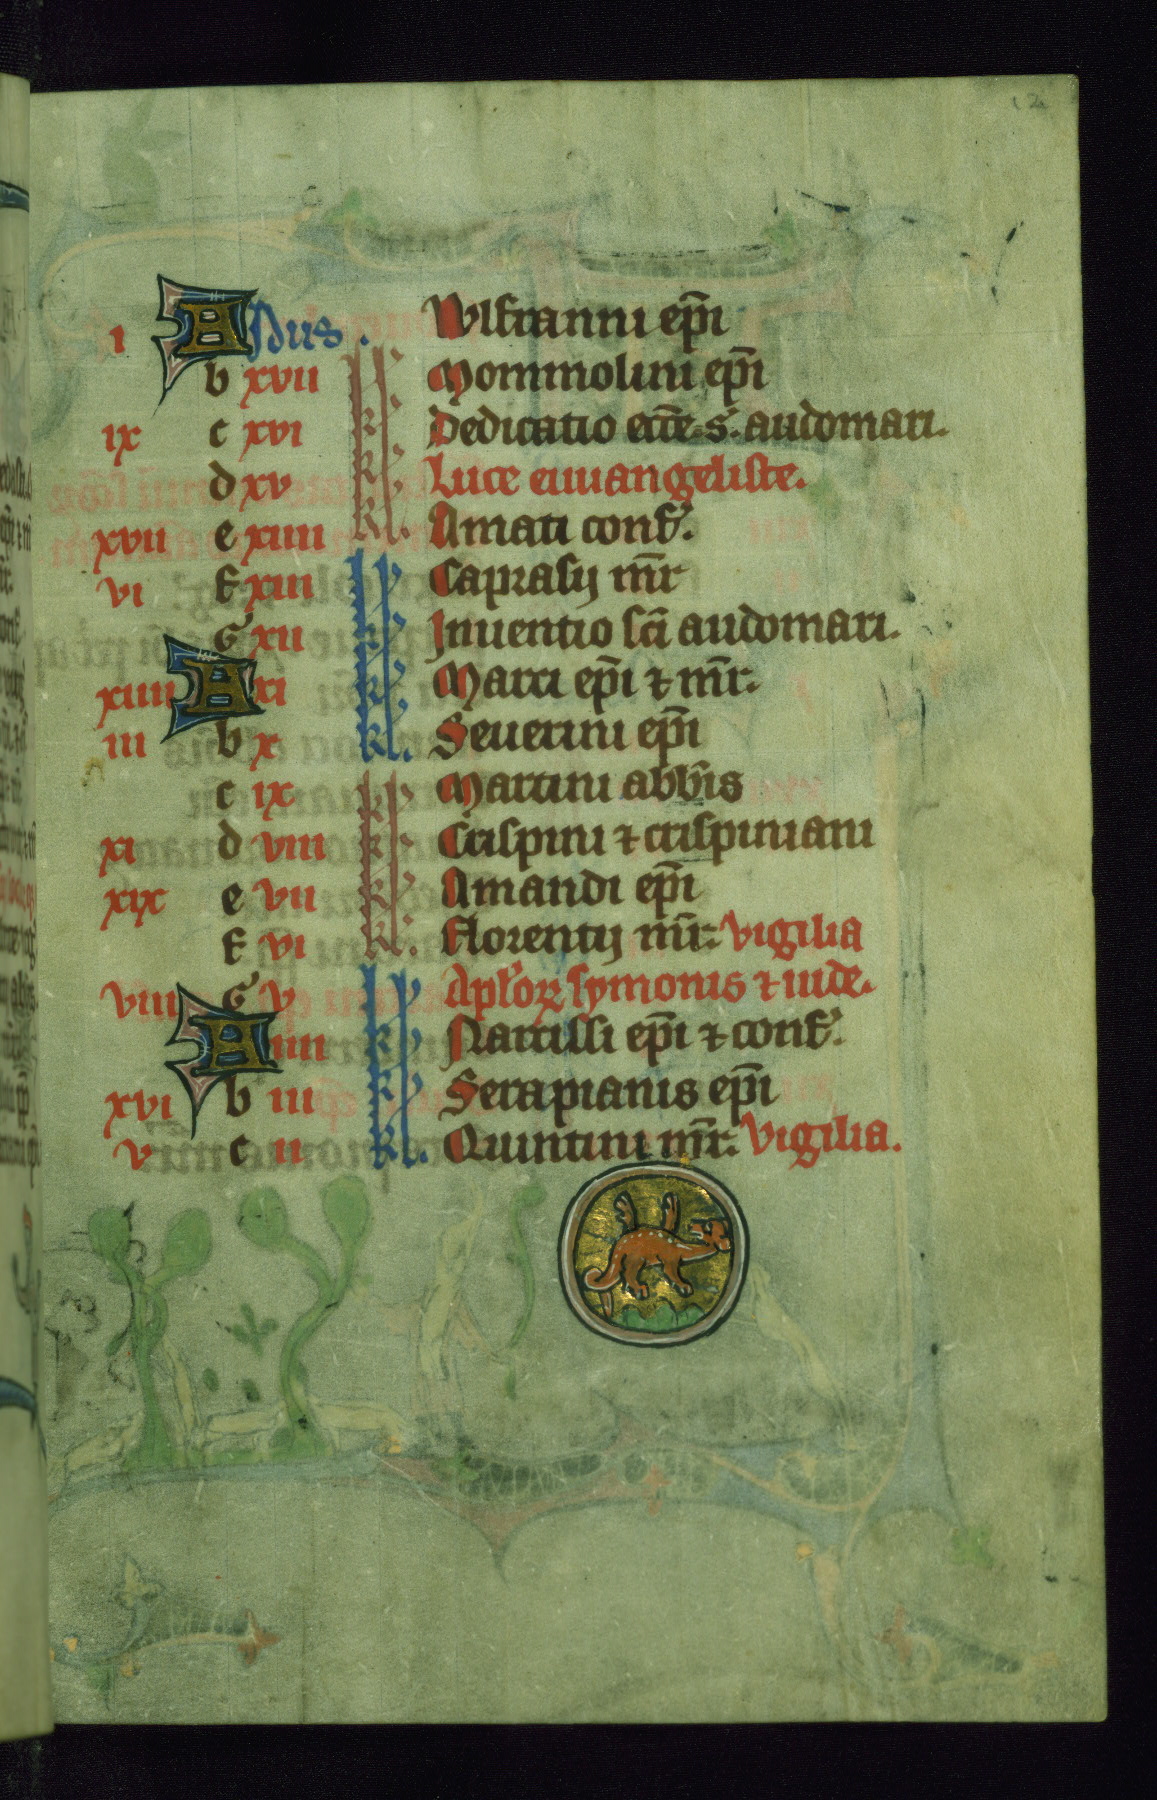 12
i A Idus. Wlfranni ep̄i
b xvii kł. Mommolini ep̄i
ix c xvi kł. Dedicatio ecc̄e s. audomari.
d xv kł. Luce euuangeliste.
xvii e xiiii kł. Amati conf̄.
vi f xiii kł. Caprasij m̄r
G xii kł. Inuentio sc̄i audomari.
xiiii A xi kł. Marci ep̄i ⁊ m̄r.
iii b x kł. Seuerini ep̄i
c ix kł. Martini abb̄is
xi d viii kł. Crispini ⁊ crispiniani
xix e vii kł. Amandi ep̄i
f vi kł. Florentij m̄r. vigilia
viii G v kł. Apl'oꝝ symonis ⁊ iude.
A iiii kł. Narcissi ep̄i ⁊ conf̄.
xvi b iii kł. Serapianis ep̄i
v c ii kł. Quintini m̄r. Vigilia.